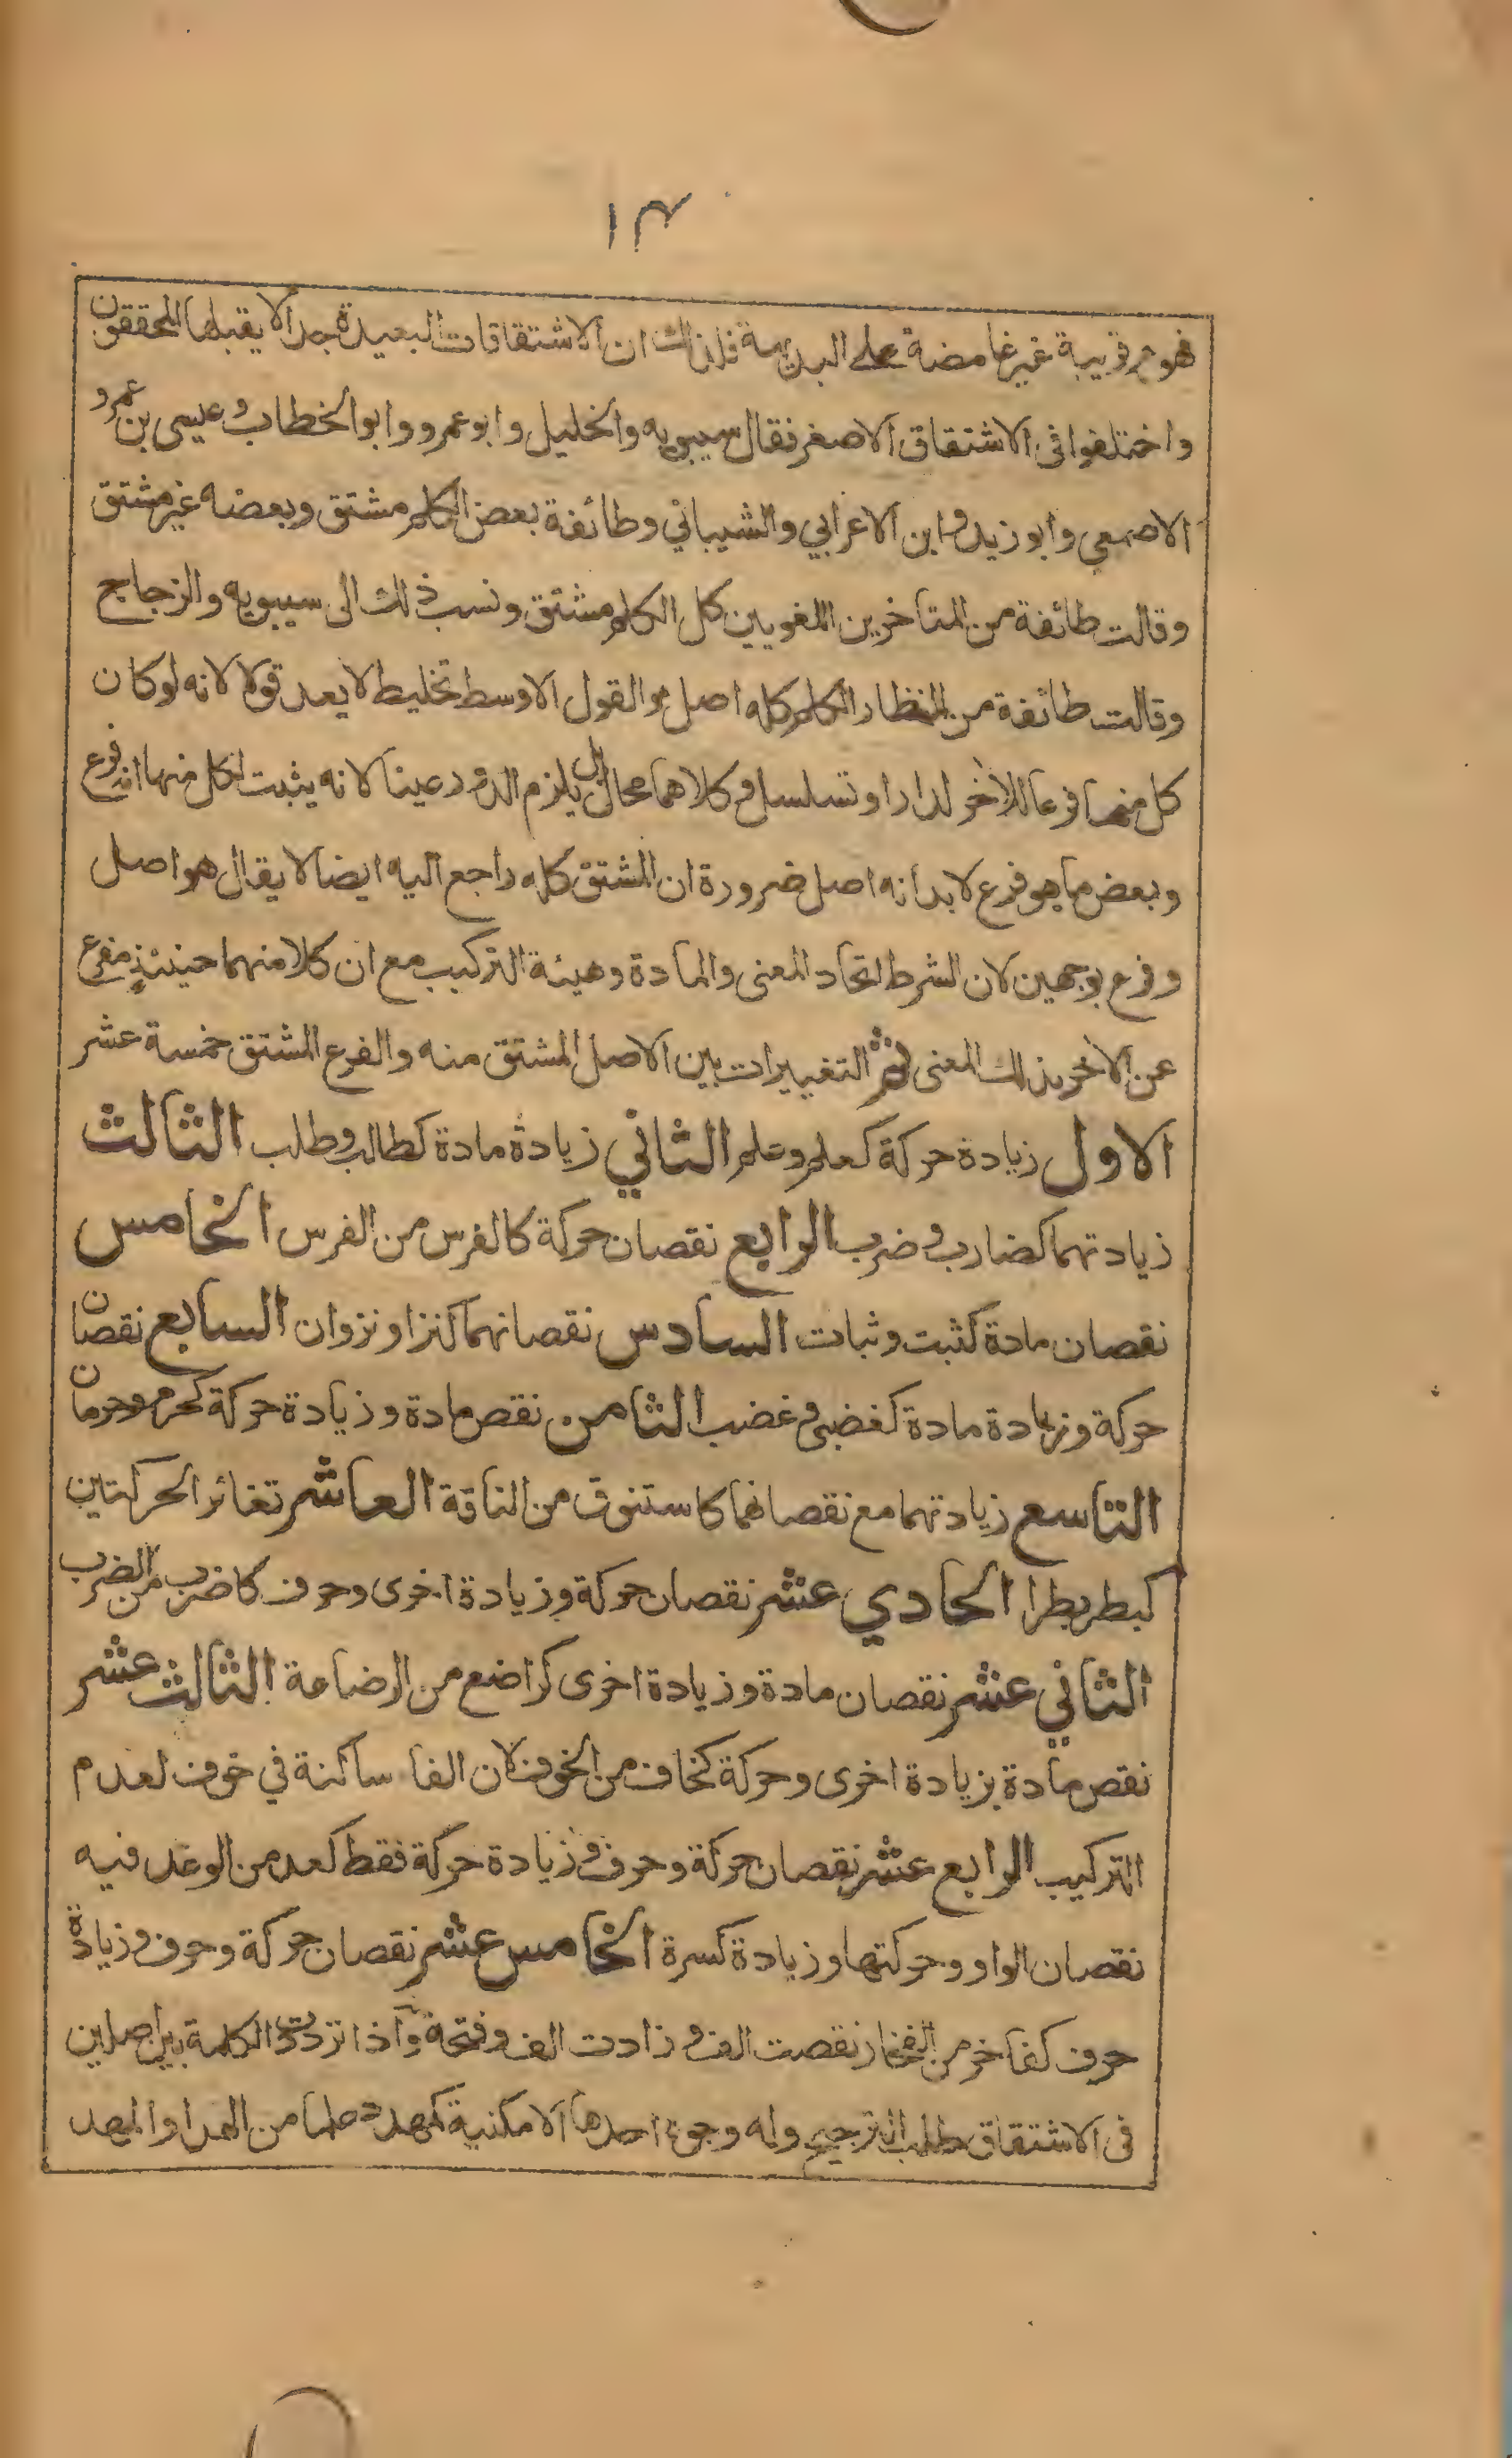 ١٣
فهوم قريبة غير غامضة على البديهة فلذلك ان الاشتقاقات البعيدة جدا لا يقبلها المحققون
واختلفوا في الاشتقاق الاصغر فقال سيبويه والخليل وابو عمرو وابو الخطاب وعيسى بن عمرو
الاصمعي وابو زيد وابن الاعرابي والشيباني وطائفة بعض الكلم مشتق وبعضه غير مشتق
وقالت طائفة من المتاخرين اللغويين كل الكلم مشتق ونسب ذلك الى سيبويه والزجاج
وقالت طائفة من النظار الكلم كله اصل والقول الاوسط تخليط لا يعد قولا لانه لو كان
كل منهما فرعا للاخر لدار او تسلسل وكلاهما محال بل يلزم الدور عينا لانه يثبت لكل منهما انه فرع
وبعض ما هو فرع لا بد انه اصل ضرورة ان المشتق كله راجع اليه ايضا لا يقال هو اصل
وفرع بوجهين لان الشرط اتحاد المعنى والمادة وهيئة التركيب مع ان كلا منهما حينئذ مفرع
عن الاخر بذلك المعنى ثم التغييرات بين الاصل المشتق منه والفرع المشتق خمسة عشر
الاول زيادة حركة كعلم وعلم الثاني زيادة مادة كطالب وطلب الثالث
زيادتهما كضارب وضرب الرابع نقصان حركة كالفرس من الفرس الخامس
نقصان مادة كثبت وثبات السادس نقصانهما كنزا ونزوان السابع نقصان
حركة وزيادة مادة كغضبى وغضب الثامن نقص مادة وزيادة حركة كحرم وحرمان
التاسع زيادتهما مع نقصانهما كاستنوق من الناقة العاشر تغائر الحركتين
كبطر بطرا الحادي عشر نقصان حركة وزيادة اخرى وحرف كاضرب من الضرب
الثاني عشر نقصان مادة وزيادة اخرى كراضع من الرضاعة الثالث عشر
نقص مادة بزيادة اخرى وحركة كخاف من الخوف لان الفا ساكنة في خوف لعدم
التركيب الرابع عشر نقصان حركة وحرف وزيادة حركة فقط كعد من الوعد فيه
نقصان الواو وحركتها وزيادة كسرة الخامس عشر نقصان حركة وحرف وزيادة
حرف كفاخر من الفخار نقصت الف وزادت الف وفتحة واذا ترددت الكلمة بين اصلين
في الاشتقاق طلب الترجيح وله وجوه احدها الامكنية كمهدد علما من الهد او المهد